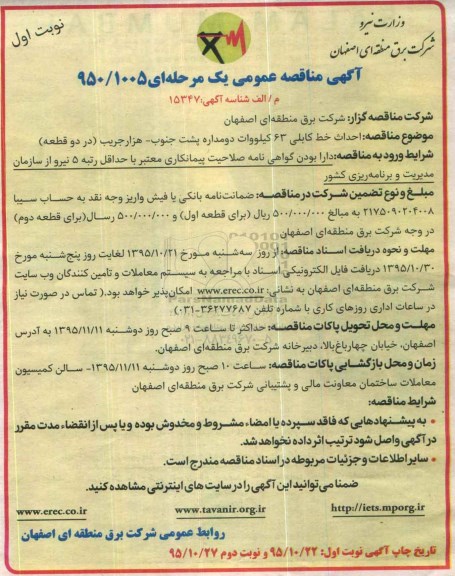 وزارت نیرو
شرکت برق منطقه ای اصفهان
نوبت اول
آگهی مناقصه عمومی یک مرحله‌ای ۹۵۰/۱۰۰۵
م / الف شناسه آگهی: ۱۵۳۴۷
شرکت مناقصه گزار: شرکت برق منطقه‌ای اصفهان
موضوع مناقصه: احداث خط کابلی ۶۳ کیلووات دومداره پشت جنوب- هزارجریب (در دو قطعه)
شرایط ورود به مناقصه: دارا بودن گواهی نامه صلاحیت پیمانکاری معتبر با حداقل رتبه ۵ نیرو از سازمان
مدیریت و برنامه‌ریزی کشور
مبلغ و نوع تضمین شرکت در مناقصه: ضمانت‌نامه بانکی یا فیش واریز وجه نقد به حساب سیبا
۲۱۷۵۰۹۰۲۰۴۰۰۸ به مبالغ ۵۰۰/۰۰۰/۰۰۰ ریال (برای قطعه اول) و ۵۰۰/۰۰۰/۰۰۰ ریال (برای قطعه دوم)
در وجه شرکت برق منطقه‌ای اصفهان
مهلت و نحوه دریافت اسناد مناقصه: از روز سه‌شنبه مورخ ۱۳۹۵/۱۰/۲۱ لغایت روز پنج‌شنبه مورخ
۱۳۹۵/۱۰/۳۰ دریافت فایل الکترونیکی اسناد با مراجعه به سیستم معاملات و تامین کنندگان وب سایت
شرکت برق منطقه‌ای اصفهان به نشانی: www.erec.co.ir امکان‌پذیر خواهد بود.( تماس در صورت نیاز
در ساعات اداری روزهای کاری با شماره تلفن ۳۶۲۷۷۶۸۷-۰۳۱)
مهلت و محل تحویل پاکات مناقصه: حداکثر تا ساعت ۹ صبح روز دوشنبه ۱۳۹۵/۱۱/۱۱ به آدرس
اصفهان، خیابان چهارباغ بالا، دبیرخانه شرکت برق منطقه‌ای اصفهان.
زمان و محل بازگشایی پاکات مناقصه: ساعت ۱۰ صبح روز دوشنبه ۱۳۹۵/۱۱/۱۱- سالن کمیسیون
معاملات ساختمان معاونت مالی و پشتیبانی شرکت برق منطقه‌ای اصفهان
شرایط مناقصه:
• به پیشنهادهایی که فاقد سپرده یا امضاء مشروط و مخدوش بوده و یا پس از انقضاء مدت مقرر
در آگهی واصل شود ترتیب اثر داده نخواهد شد.
• سایر اطلاعات و جزئیات مربوطه در اسناد مناقصه مندرج است.
ضمنا می‌توانید این آگهی را در سایت های اینترنتی مشاهده کنید.
http://iets.mporg.ir www.tavanir.org.ir www.erec.co.ir
روابط عمومی شرکت برق منطقه ای اصفهان
تاریخ چاپ آگهی نوبت اول: ۹۵/۱۰/۲۲ و نوبت دوم ۹۵/۱۰/۲۷